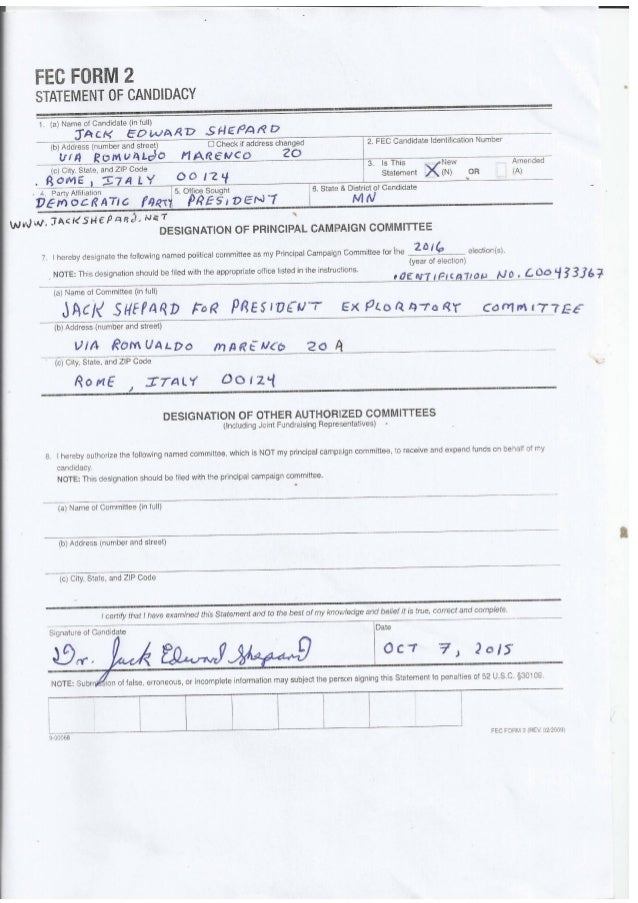 FEC FORM 2
STATEMENT OF CANDIDACY
1. (a) Name of Candidate (in full)
JACK EDWARD SHEPARD
(b) Address (number and street) ☐ Check if address changed
2. FEC Candidate Identification Number
VIA ROMUALDO MARENCO 20
(c) City, State, and ZIP Code
3. Is This Statement X New (N) OR Amended (A)
ROME, ITALY 00124
4. Party Affiliation
5. Office Sought
6. State & District of Candidate
DEMOCRATIC PARTY PRESIDENT MN
WWW.JACKSHEPARD.NET
DESIGNATION OF PRINCIPAL CAMPAIGN COMMITTEE
7. I hereby designate the following named political committee as my Principal Campaign Committee for the 2016 election(s).
(year of election)
NOTE: This designation should be filed with the appropriate office listed in the instructions.
IDENTIFICATION NO. C00433367
(a) Name of Committee (in full)
JACK SHEPARD FOR PRESIDENT EXPLORATORY COMMITTEE
(b) Address (number and street)
VIA ROMUALDO MARENCO 20 A
(c) City, State, and ZIP Code
ROME, ITALY 00124
DESIGNATION OF OTHER AUTHORIZED COMMITTEES
(Including Joint Fundraising Representatives)
8. I hereby authorize the following named committee, which is NOT my principal campaign committee, to receive and expend funds on behalf of my
candidacy.
NOTE: This designation should be filed with the principal campaign committee.
(a) Name of Committee (in full)
(b) Address (number and street)
(c) City, State, and ZIP Code
I certify that I have examined this Statement and to the best of my knowledge and belief it is true, correct and complete.
Signature of Candidate
Date
Dr. Jack Edward Shepard
OCT 7, 2015
NOTE: Submission of false, erroneous, or incomplete information may subject the person signing this Statement to penalties of 52 U.S.C. §30109.
FEC FORM 2 (REV. 02/2009)